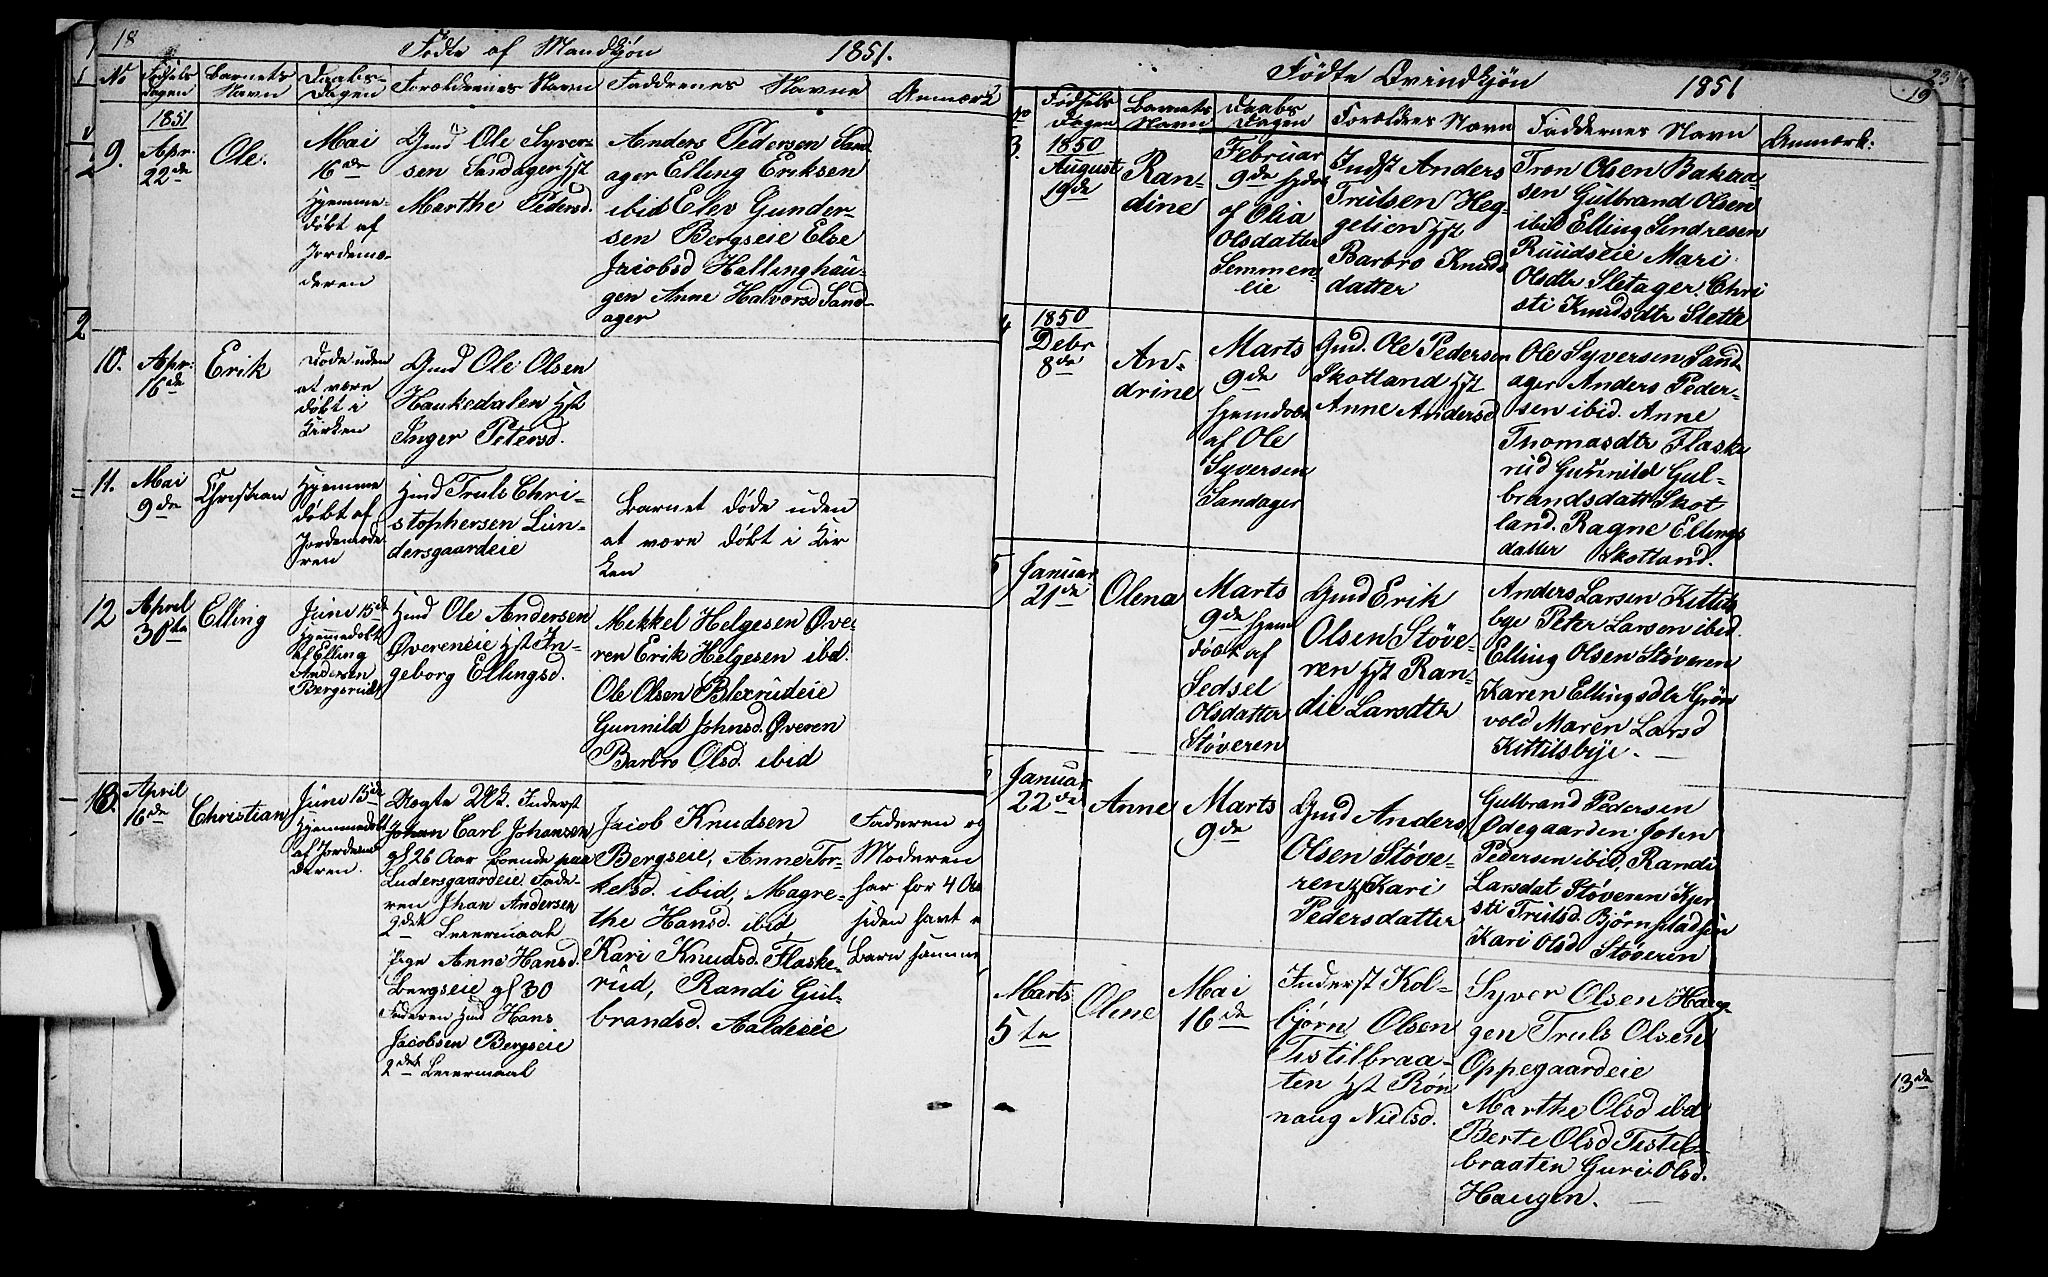 18
Fødte af Mandkjøn 1851.
No
Fødsels
dagen
Barnets
Navn
Daabs-
dagen
Forældrenes Navn
Faddrenes Navne
Anmærk
9.
1851
Apr.
22de
Ole.
Mai
16de
Hjemme-
døbt af
Jordemo-
deren
Gmd Ole Syver-
sen Sandager Hst
Marthe Pedersd.
Anders Pedersen San-
ager Elling Eriksen
ibid Elev Gunder-
sen Bergseie Else
Jacobsd Hallinghau-
gen Anne Halvorsd Sand-
ager
10.
Apr.
16de
Erik
Døde uden
at være
døbt i
Kirken
Gmd Ole Olsen
Haukedalen Hst
Inger Petersd.
11.
Mai
9de
Christian
Hjemme
døbt af
Jordemode
ren
Hmd Truls Chri-
stophersen Lun-
dersgaardeie
Barnet døde uden
at være døbt i Kir
ken
12
April
30te
Elling
Juni 15de
Hjemmedøbt
af Elling
Andersen
Bergsrud
Hmd Ole Andersen
Øvereneie Hst In-
geborg Ellingsd.
Mekkel Helgesen Øve-
ren Erik Helgesen ibd.
Ole Olsen Blexrudeie
Gunnild Johnsd. Øveren
Barbro Olsd. ibid
13.
April
16de
Christian
Juni 15de
Hjemmedøbt
af Jordemo
deren.
Uægte Inderst
Johan Carl Johansen
gl 26 Aar boende paa
Ludersgaardeie. Fade-
ren Jhan Andersen
2det Leiermaal
Pige Anne Hansd.
Bergseie gl 30
Faderen Hmd Hans
Jacobsen Bergseie
2det Leiermaal
Jacob Knudsen
Bergseie, Anne Tor-
kelsd. ibid, Magre-
the Hansd. ibid
Kari Knudsd. Flaske-
rud, Randi Gul-
brandsd. Aaldieie
Faderen og
Moderen
har for 4 Aar
siden havt
Barn samme
Fødte Qvindkjøn 1851
19
No
Fødsels
dagen
Barnets
Navn
Daabs
dagen
Forældres Navn
Faddernes Navn
Anmærk:
3.
1850
August
19de
Ran-
dine
Februar
9de hjdø
af Olia
Olsdatter
Semmen-
eie
Indst Anders
Trulsen Heg-
gelien Hst.
Barbro Knuds
datter
Tron Olsen Bakaa-
sen Gulbrand Olsen
ibid Elling Sendresen
Ruudseie Mari
Olsdtr Sletager Chri
sti Knudsdtr Slette
4
1850
Debr
8de
An-
drine
Marts
9de
hjemdøbt
af Ole
Syversen
Sandager
Gmd. Ole Pedersen
Skotland Hst
Anne Andersd
Ole Syversen Sand-
ager Anders Peder-
sen ibid. Anne
Thomasdtr Flaske
rud Gunnild Gul-
brandsdatt Skot
land. Ragne Ellings
datter Skotland.
5
Januar
21de
Olena
Marts
9de hjem
døbt af
Sedsel
Olsdatter
Støveren
Gmd Erik
Olsen Støve-
ren Hst Ran-
die Larsdtr
Anders Larsen Kittils
bye Peter Larsen ibid.
Elling Olsen Støveren
Karen Ellingsdtr Grøn
vold Maren Larsd
Kittilsbye. -
Januar
22de
Anne
Marts
9de
Gmd Anders
Olsen Støve-
ren Hst Kari
Pedersdatter
Gulbrand Pedersen
Ødegaarden. John
Pedersen ibid, Randi
Larsdat Støveren Kjer
sti Trulsd.
Kari Olsd Støveren
Marts
5te
Olene
Mai
16de
Inderst Kol-
bjørn Olsen
Tistilbraa-
ten Hst Røn
naug Nielsd.
Syver Olsen Hau-
gen Truls Olsen
Oppegaardeie
Marthe Olsd ibd
Berte Olsd Tistel-
braaten Guri Olsd.
Haugen. -
13de